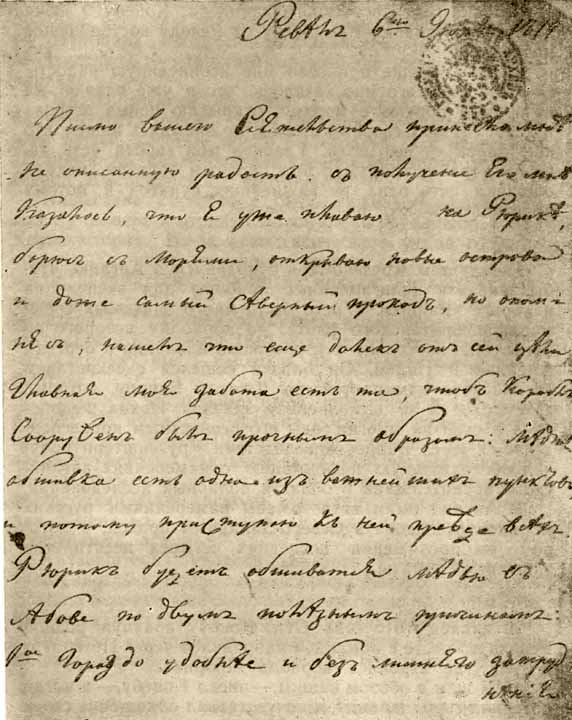 Ревель 6го 1814
Писмо вашего Сіятельства принесло мнѣ
не описанную радость. съ полученіе Его мнѣ
Казалось, что Я уже плаваю на Рюрикѣ,
борюсь съ Морями, открываю новые острова
и даже самый Сѣверный проходъ, но опом-
нясь, нашелъ что еще далекъ отъ сей цели
Главная моя забота есть та, чтобъ Корабль
Сооруженъ былъ прочнымъ образомъ: мѣдная
обшивка есть одна изъ важнейшихъ пунктовъ
и потому приступаю къ ней прежде всѣхъ.
Рюрикъ будетъ обшиватся мѣдью въ
Абове по двумъ полѣзнымъ причинамъ:
1ое Гораздо удобнѣе и безъ лишнего затруд
нѣнія